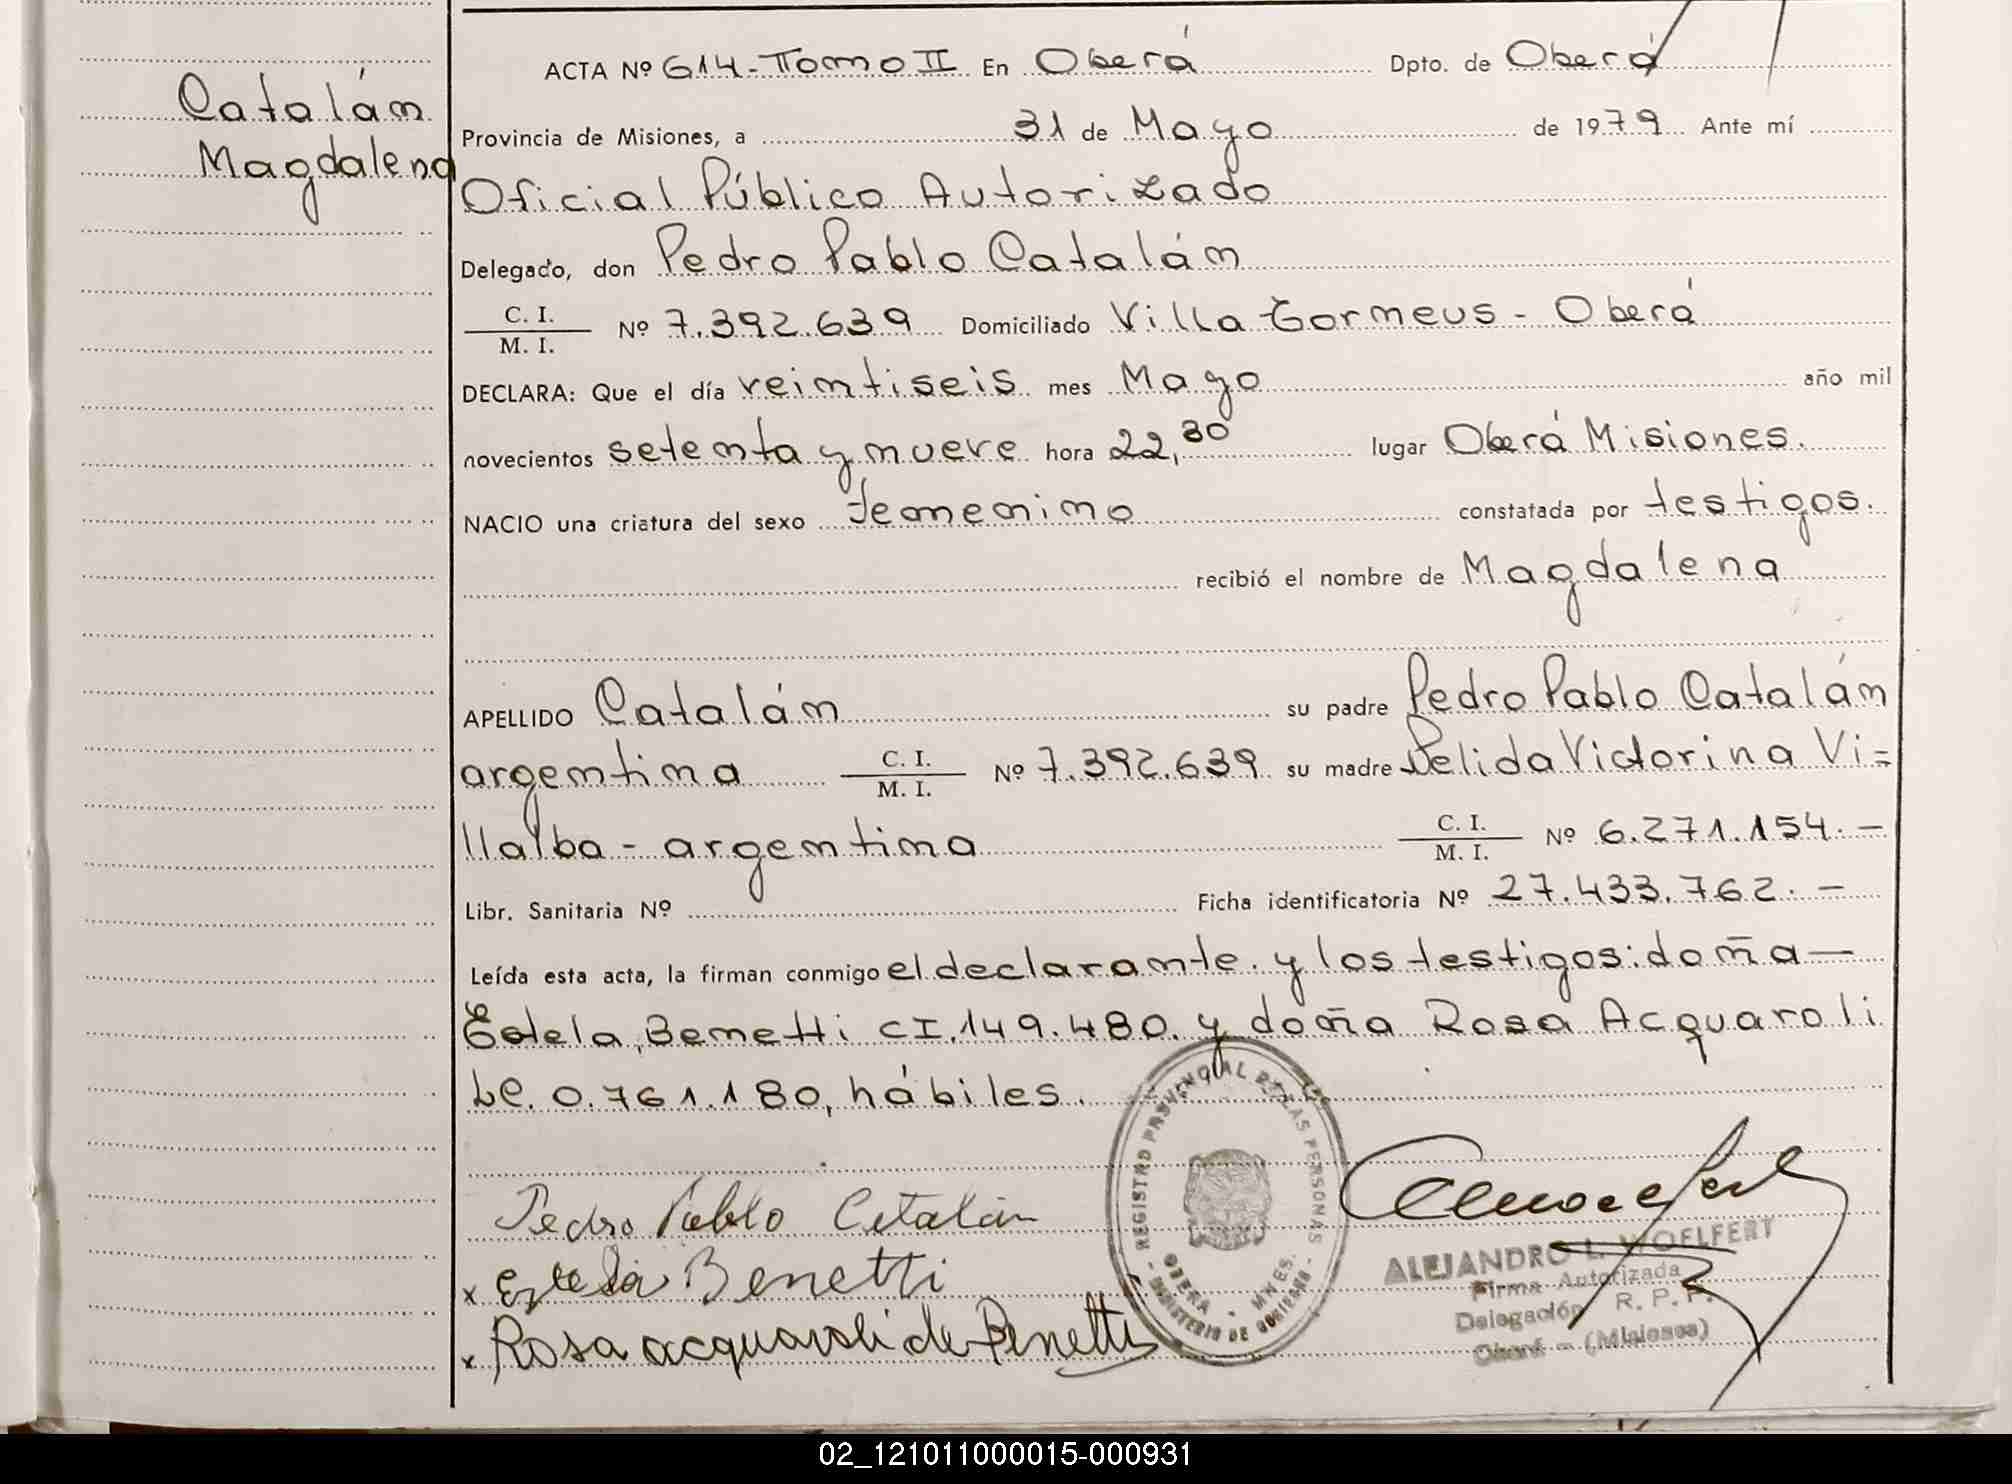 Catalán
Magdalena
ACTA Nº 614-Tomo II En Oberá Dpto. de Oberá
Provincia de Misiones, a 31 de Mayo de 1979 Ante mí
Oficial Público Autorizado
Delegado, don Pedro Pablo Catalán
C. I. / M. I. Nº 7.392.639 Domiciliado Villa Tormeus - Oberá
DECLARA: Que el día veintiseis mes Mayo año mil
novecientos setenta y nueve hora 22,30 lugar Oberá Misiones.
NACIO una criatura del sexo femenino constatada por testigos.
recibió el nombre de Magdalena
APELLIDO Catalán su padre Pedro Pablo Catalán
argentina C. I. / M. I. Nº 7.392.639 su madre Delida Victorina Vi=
llalba - argentina C. I. / M. I. Nº 6.271.154.-
Libr. Sanitaria Nº Ficha identificatoria Nº 27.433.762.-
Leída esta acta, la firman conmigo el declarante. y los testigos: doña —
Estela, Benetti CI. 149.480. y doña Rosa Acquaroli
LC. 0.761.180, hábiles.
REGISTRO PROVINCIAL DE LAS PERSONAS
OBERA - MNES.
- MINISTERIO DE GOBIERNO -
Pedro Pablo Catalán
x Estela Benetti
x Rosa acquaroli de Benetti
ALEJANDRO L. WOELFERT
Firma Autorizada
Delegación R. P. P.
Oberá - (Misiones)
02_121011000015-000931